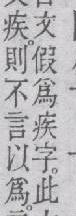 文假爲疾字。此
疾。則不言以爲。